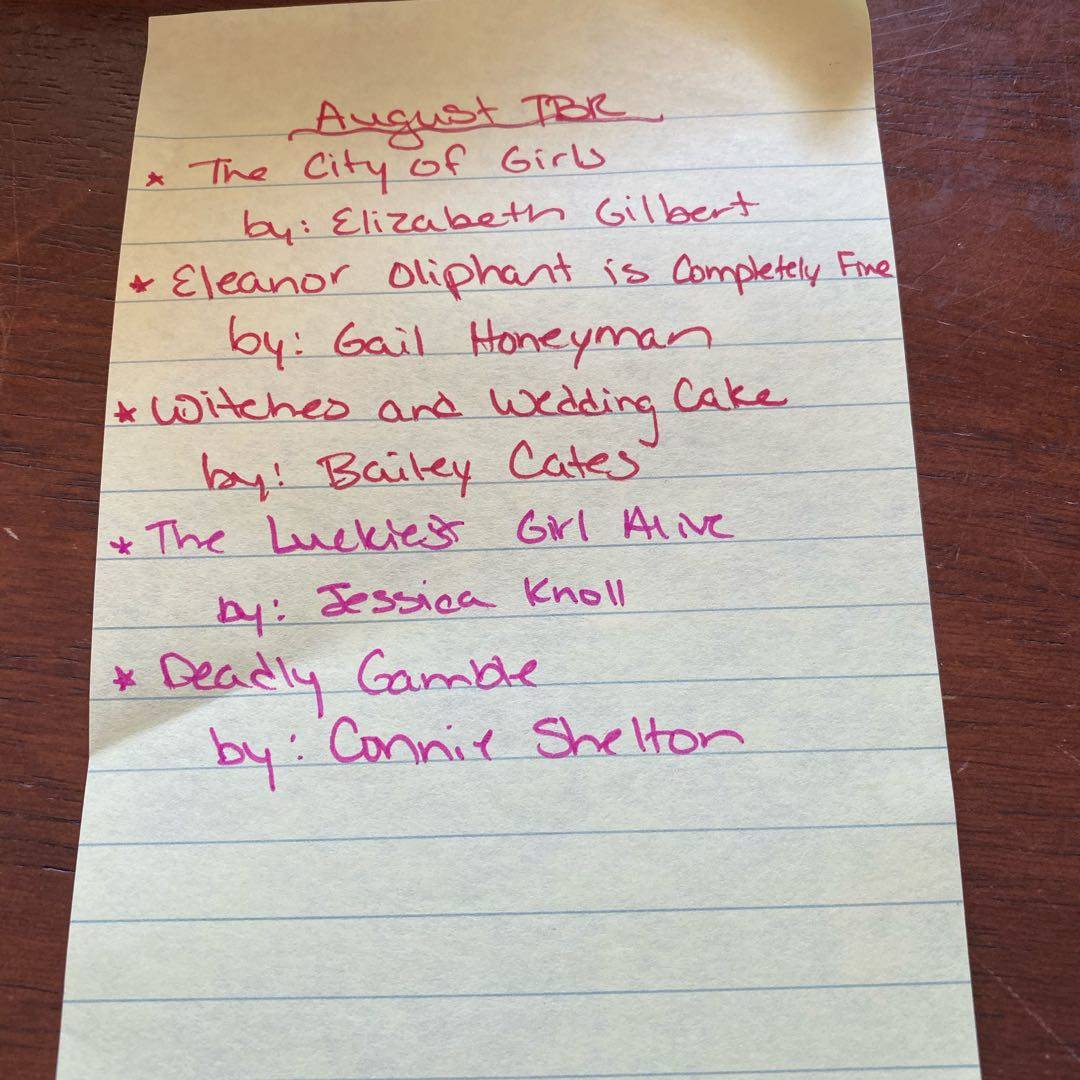 August TBR
* The City of Girls
by: Elizabeth Gilbert
* Eleanor Oliphant is Completely Fine
by: Gail Honeyman
* Witches and Wedding Cake
by: Bailey Cates
* The Luckiest Girl Alive
by: Jessica Knoll
* Deadly Gamble
by: Connie Shelton